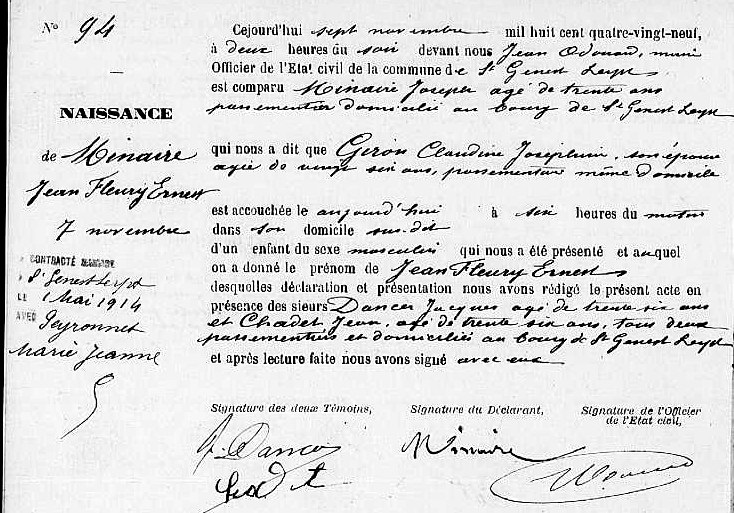 No 94
NAISSANCE
de Minaire
Jean Fleury Ernest
7 novembre
CONTRACTÉ MARIAGE
St Genest Lerpt
LE 1 Mai 1914
AVEC Peyronnet
Marie Jeanne
Cejourd'hui sept novembre mil huit cent quatre-vingt-neuf,
à deux heures du soir devant nous Jean Odouard, maire
Officier de l'Etat civil de la commune de St Genest Lerpt
est comparu Minaire Joseph agé de trente ans
passementier domicilié au bourg de St Genest Lerpt
qui nous a dit que Geron Claudine Josephine, son épouse
agée de vingt six ans, passementière même domicile
est accouchée le aujourd'hui à six heures du matin
dans son domicile susdit
d'un enfant du sexe masculin qui nous a été présenté et auquel
on a donné le prénom de Jean Fleury Ernest
desquelles déclaration et présentation nous avons rédigé le présent acte en
présence des sieurs Dancer Jacques agé de trente six ans
et Chadet Jean, agé de trente six ans, tous deux
passementiers et domiciliés au bourg de St Genest Lerpt
et après lecture faite nous avons signé avec eux
Signature des deux Témoins, Signature du Déclarant, Signature de l'Officier
de l'Etat civil,
Minaire